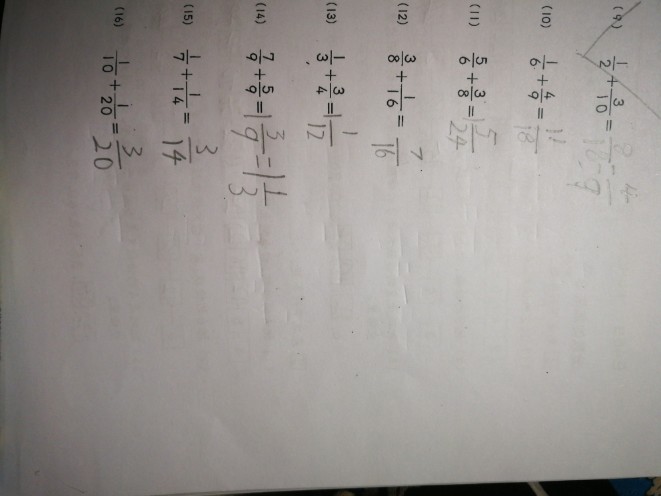 (9) 1/2 + 3/10 =
(10) 1/6 + 4/9 = 11/18
(11) 5/6 + 3/8 = 1 5/24
(12) 3/8 + 1/16 = 7/16
(13) 1/3 + 3/4 = 1 1/12
(14) 7/9 + 5/9 = 1 3/9 = 1 1/3
(15) 1/7 + 1/14 = 3/14
(16) 1/10 + 1/20 = 3/20